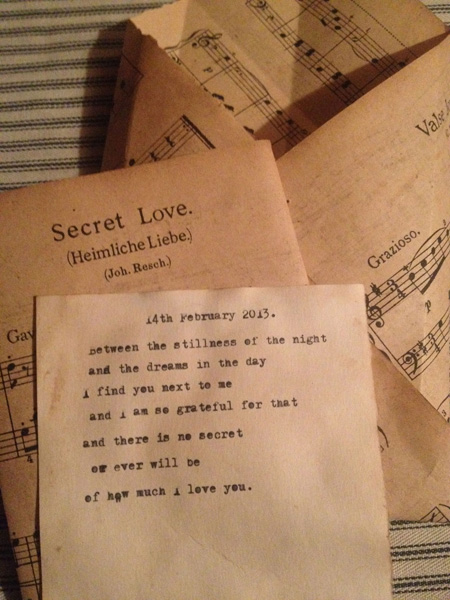 Secret Love.
(Heimliche Liebe.)
(Joh. Resch.)
Grazioso.
p
p
14th February 2013.
between the stillness of the night
and the dreams in the day
i find you next to me
and i am so grateful for that
and there is no secret
or ever will be
of how much i love you.